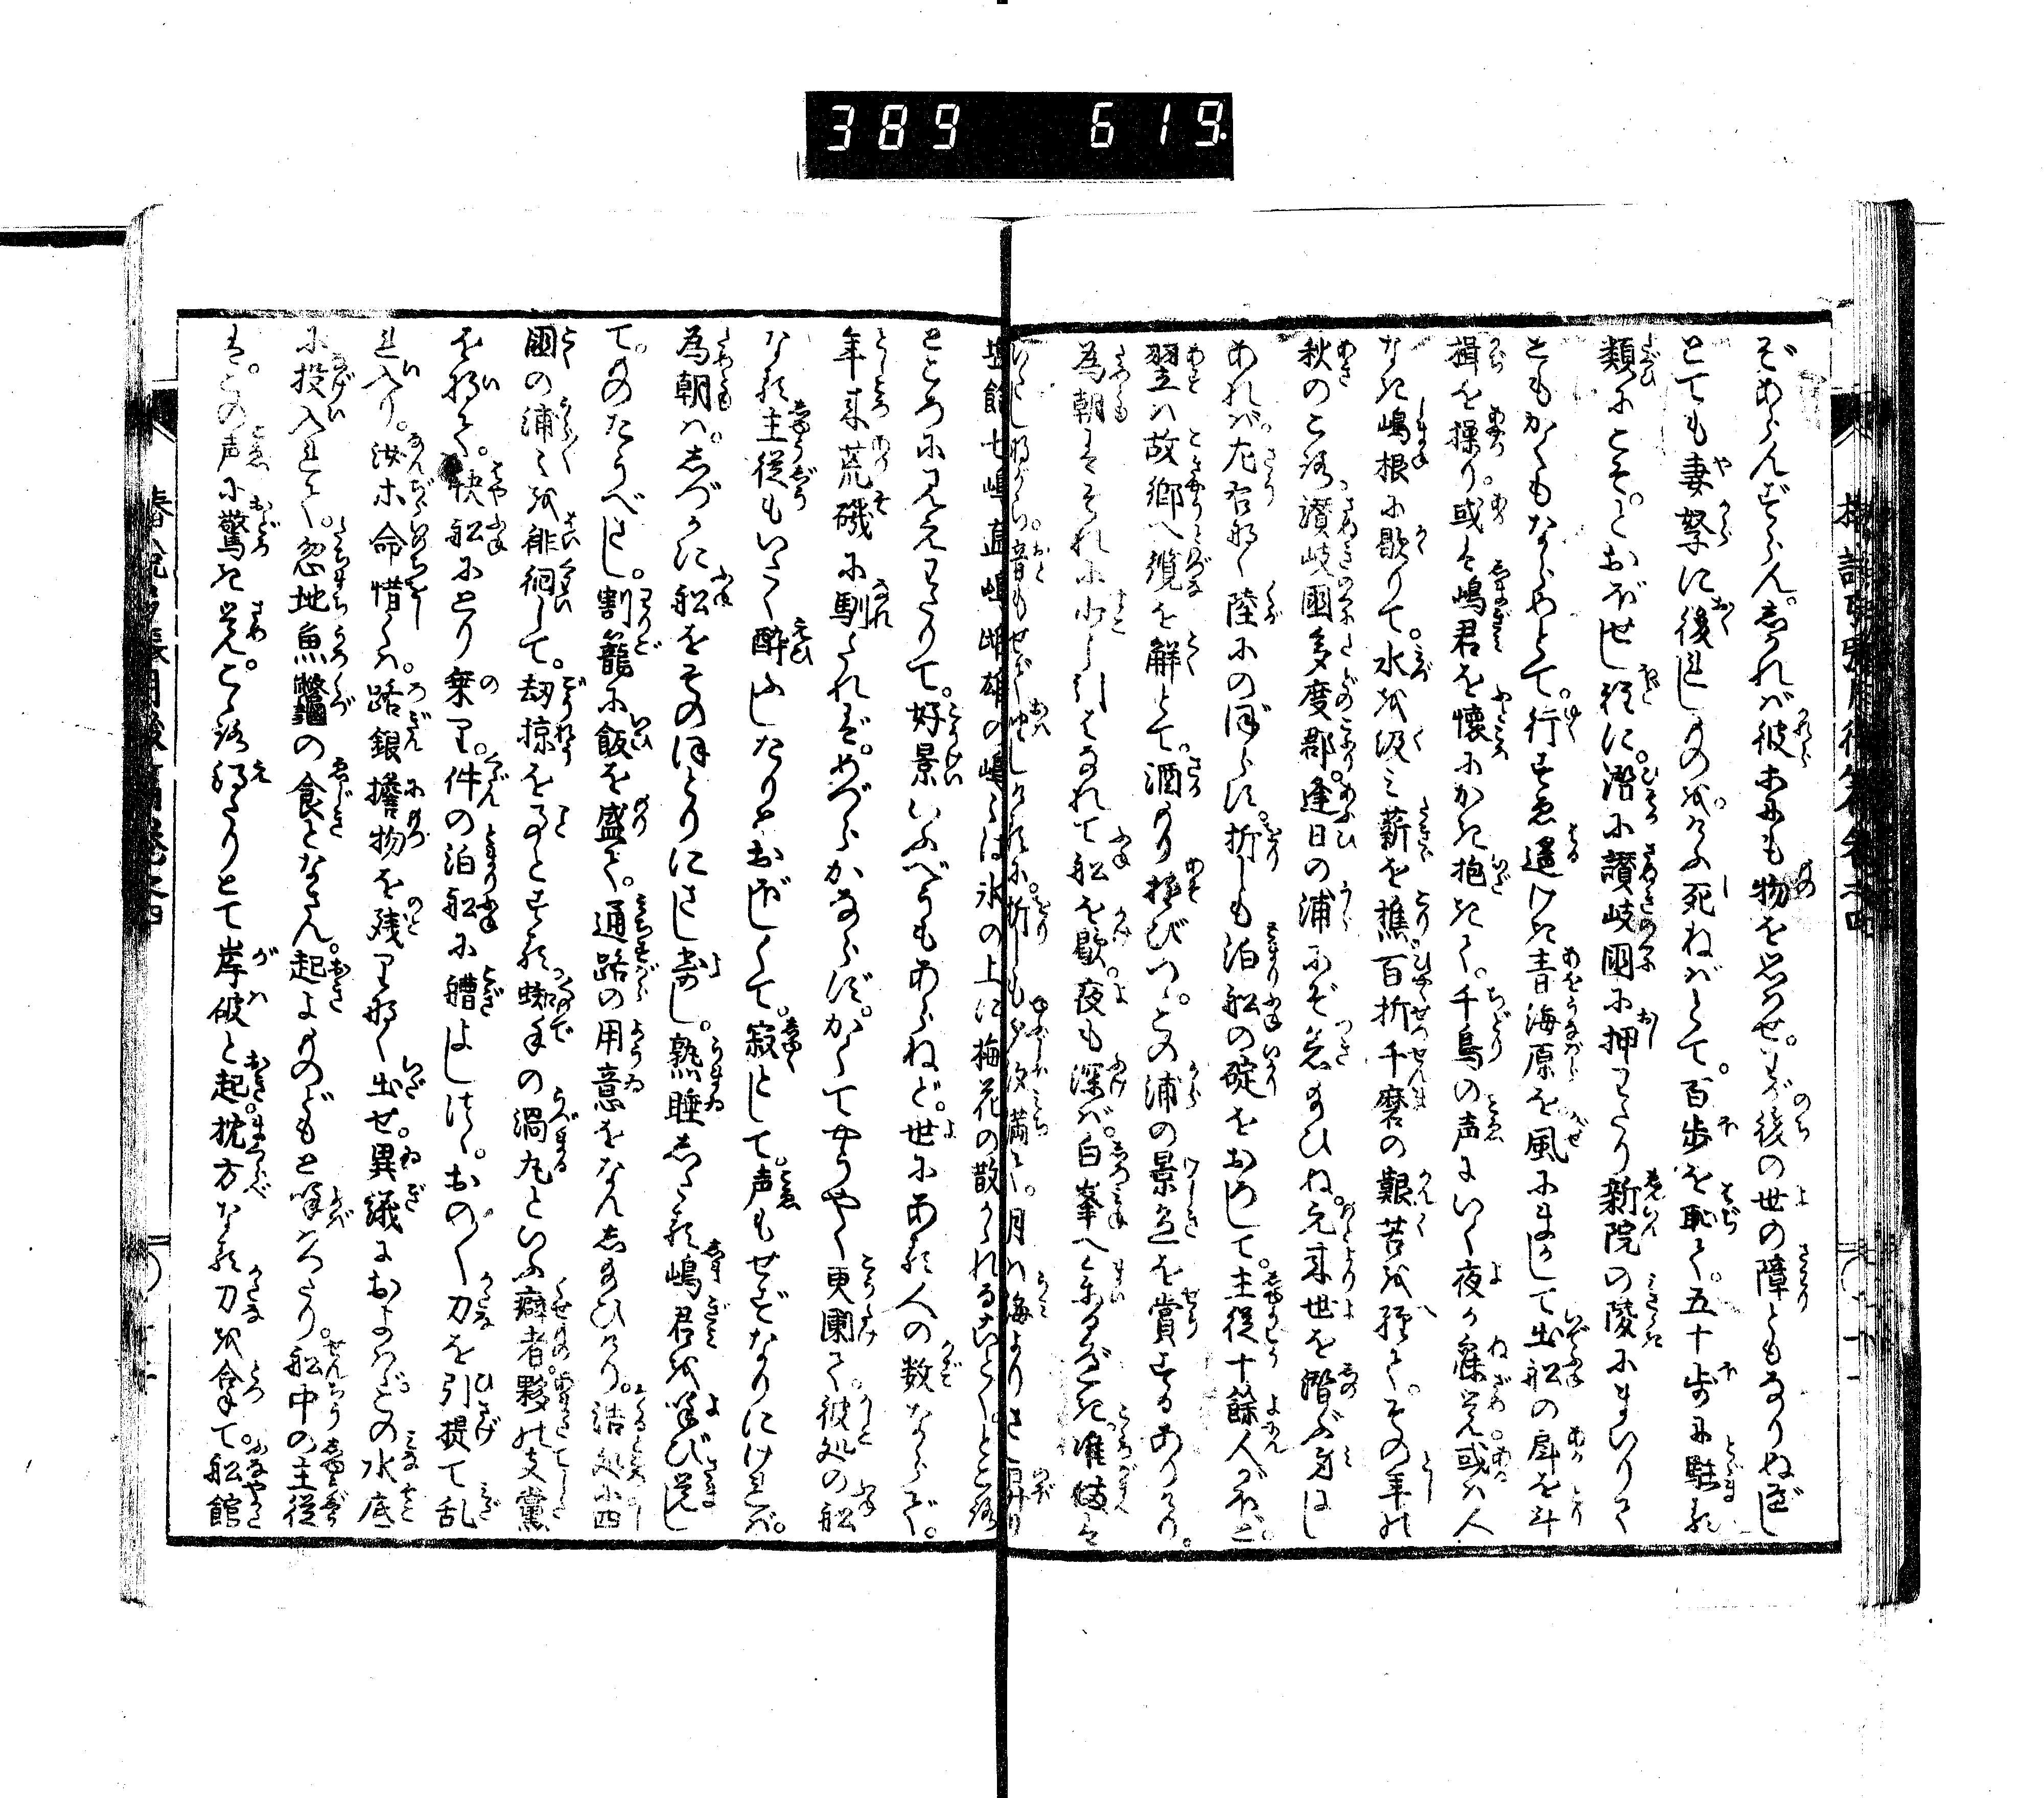 ぞあらんずらん。しかれば彼ホにも物を思はせ。わが後の世の障ともなりぬべし
とても妻孥に後れしものが。けふ死ねばとて。百歩を恥て。五十歩に駐る
類にこそ。とおぼせし程に。潜に讃岐國に押わたり新院の陵にまいりて
ともかくもならめとて。行すゑ遥けき青海原を風にまかして出船の扈を斗
楫を操り。或は嶋君を懐にかき抱きて。千鳥の声にいく夜か寐覚。或は人
なき嶋根に歇りて。水を汲み薪を樵。百折千磨の艱苦を經て。その年の
秋のころ。讃岐國多度郡。逢日の浦にぞ着給ひね。元来世を潜ぶ身にし
あれば。左右なく陸にのぼらず。折しも泊船の碇をおろして。主従十餘人がほど。
翌は故郷へ纜を解とて。酒のみ遊びつゝ。この浦の景色を賞するありけり。
為朝はそれに少し引はなれて船を歇。夜も深ば。白峯へ参るべき准備を
いたしながら。音もせで坐しけるに。折しも夕汐満て。月は海よりさし昇り
塩飽七嶋直嶋雌雄の嶋々は水の上に梅花の散かれるごとく。ところ
どころに見えわたりて。好景いふべうもあらねど。世にある人の数ならで。
年来荒磯に馴たれば。めづらかならず。かくてやうやく更闌て。彼処の船
なる主従もいたく酔ふしたりとおぼしくて。寂として。声もせずなりにければ。
為朝は。しづかに船をそのほとりにさし寄し。熟睡したる嶋君を呼び覚し
て。ものたうべさし。割籠に飯を盛て。通路の用意をなんし給ひける。浩処に四
國の浦々を徘徊して。劫掠をことゝする蜘手の渦丸といふ癖者。夥の支黨
を将て。快船にとり乗り。件の泊船に漕よしつゝ。おの〳〵刀を引提て乱
れ入り。汝ホ命惜くは。路銀擔物を残りなく出せ。異議におよばゞ。この水底
に投入れて。忽地魚鼈の食となさん。起よものどもと呼はつたり。船中の主従
は。この声に驚き覚。こゝろ得たりとて岸破と起。枕方なる刀を拿て。船館
389 619